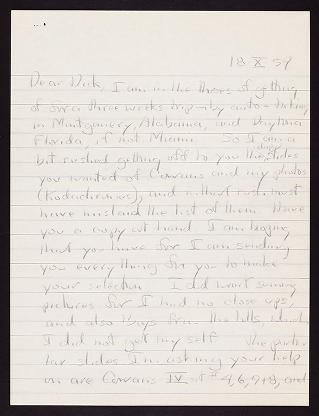 18 X 59
Dear Dick, I am in the throes of getting
off for a three weeks trip—by auto—taking
in Montgomery, Alabama, and Daytona
Florida, if not Miami. So I am a
bit rushed getting off to you the slides
you wanted of Cowans and my photos
(Kodachromes), and in that rush must
have mislaid the list of them. Have
you a copy at hand. I am hoping
that you have for I am sending
you everything for you to make
your selection. I do want
pictures for I had no close ups,
and also Kays from the hills, which
I did not get my self The particu-
lar slides I'm asking your help
on are Cowans IV, # 4, 6, 7+8, and